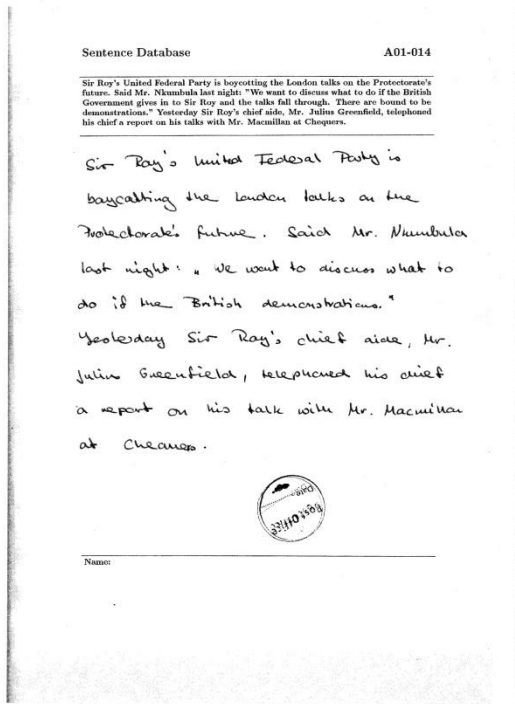 Sentence Database A01-014
Sir Roy's United Federal Party is boycotting the London talks on the Protectorate's
future. Said Mr. Nkumbula last night: "We want to discuss what to do if the British
Government gives in to Sir Roy and the talks fall through. There are bound to be
demonstrations." Yesterday Sir Roy's chief aide, Mr. Julius Greenfield, telephoned
his chief a report on his talks with Mr. Macmillan at Chequers.
Sir Roy's United Federal Party is
boycatting the London talks on the
Protectorate's future. Said Mr. Nkumbula
last night: "We want to discuss what to
do if the British demonstrations."
Yesterday Sir Roy's chief aide, Mr.
Julius Greenfield, telephoned his chief
a report on his talk with Mr. Macmillan
at Chequers.
Paid
Post Office
Name: